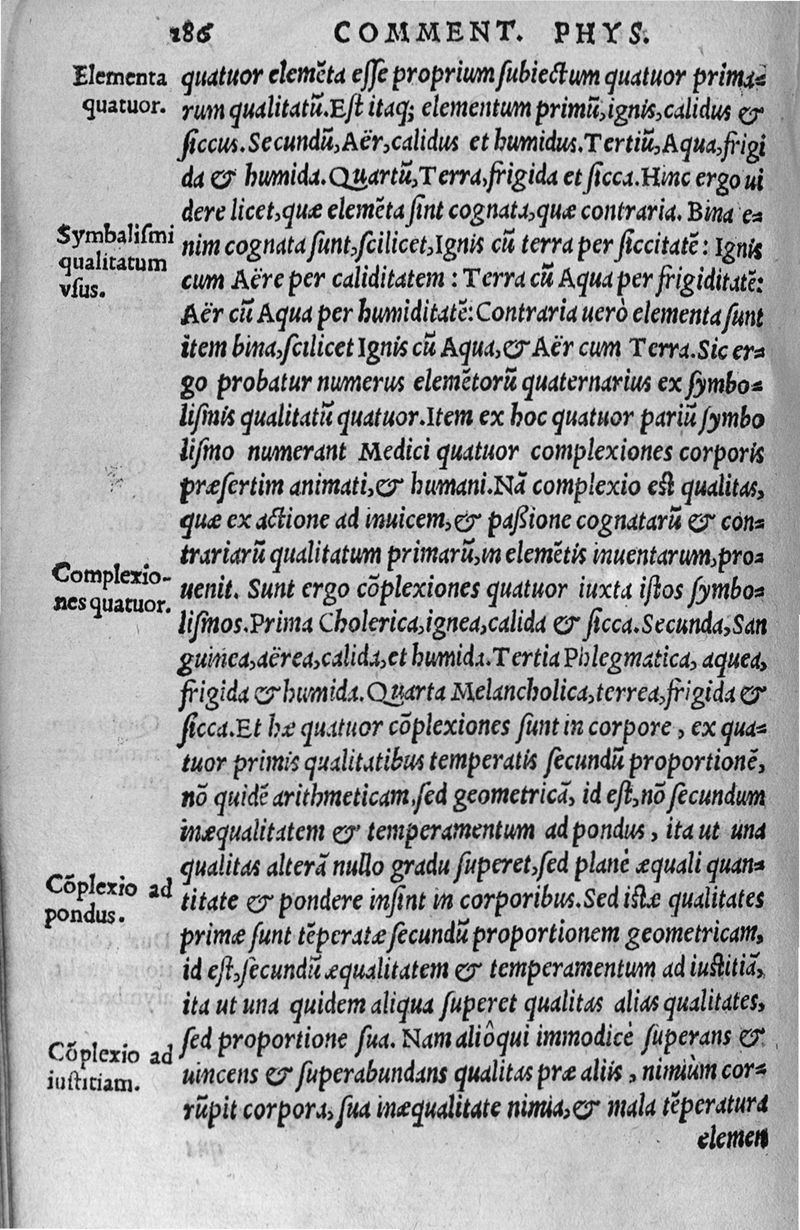 186 COMMENT. PHYS.
Elementa
quatuor.
quatuor elemẽta eſſe proprium ſubiectum quatuor prima=
rum qualitatũ. Eſt itaq; elementum primũ, ignis, calidus &
ſiccus. Secundũ, Aër, calidus et humidus. Tertiũ, Aqua, frigi
da & humida. Quartũ, Terra, frigida et ſicca. Hinc ergo ui
dere licet, quæ elemẽta ſint cognata, quæ contraria. Bina e=
Symbaliſmi
qualitatum
vſus.
nim cognata ſunt, ſcilicet, Ignis cũ terra per ſiccitatẽ: Ignis
cum Aëre per caliditatem: Terra cũ Aqua per frigiditatẽ:
Aër cũ Aqua per humiditatẽ: Contraria uerò elementa ſunt
item bina, ſcilicet Ignis cũ Aqua, & Aër cum Terra. Sic er=
go probatur numerus elemẽtorũ quaternarius ex ſymbo=
liſmis qualitatũ quatuor. Item ex hoc quatuor pariũ ſymbo
liſmo numerant Medici quatuor complexiones corporis
præſertim animati, & humani. Nã complexio eſt qualitas,
quæ ex actione ad inuicem, & paßione cognatarũ & con=
trariarũ qualitatum primarũ, in elemẽtis inuentarum, pro=
Complexio-
nes quatuor.
uenit. Sunt ergo cõplexiones quatuor iuxta iſtos ſymbo=
liſmos. Prima Cholerica, ignea, calida & ſicca. Secunda, San
guinea, aërea, calida, et humida. Tertia Phlegmatica, aquea,
frigida & humida. Quarta Melancholica, terrea, frigida &
ſicca. Et hæ quatuor cõplexiones ſunt in corpore, ex qua=
tuor primis qualitatibus temperatis ſecundũ proportionẽ,
nõ quidẽ arithmeticam, ſed geometricã, id eſt, nõ ſecundum
inæqualitatem & temperamentum ad pondus, ita ut una
qualitas alterã nullo gradu ſuperet, ſed planè æquali quan=
Cõplexio ad
pondus.
titate & pondere inſint in corporibus. Sed iſtæ qualitates
primæ ſunt tẽperatæ ſecundũ proportionem geometricam,
id eſt, ſecundũ æqualitatem & temperamentum ad iuſtitiã,
ita ut una quidem aliqua ſuperet qualitas alias qualitates,
ſed proportione ſua. Nam aliôqui immodicè ſuperans &
Cõplexio ad
iuſtitiam.
uincens & ſuperabundans qualitas præ aliis, nimiùm cor=
rũpit corpora, ſua inæqualitate nimia, & mala tẽperatura
elemen